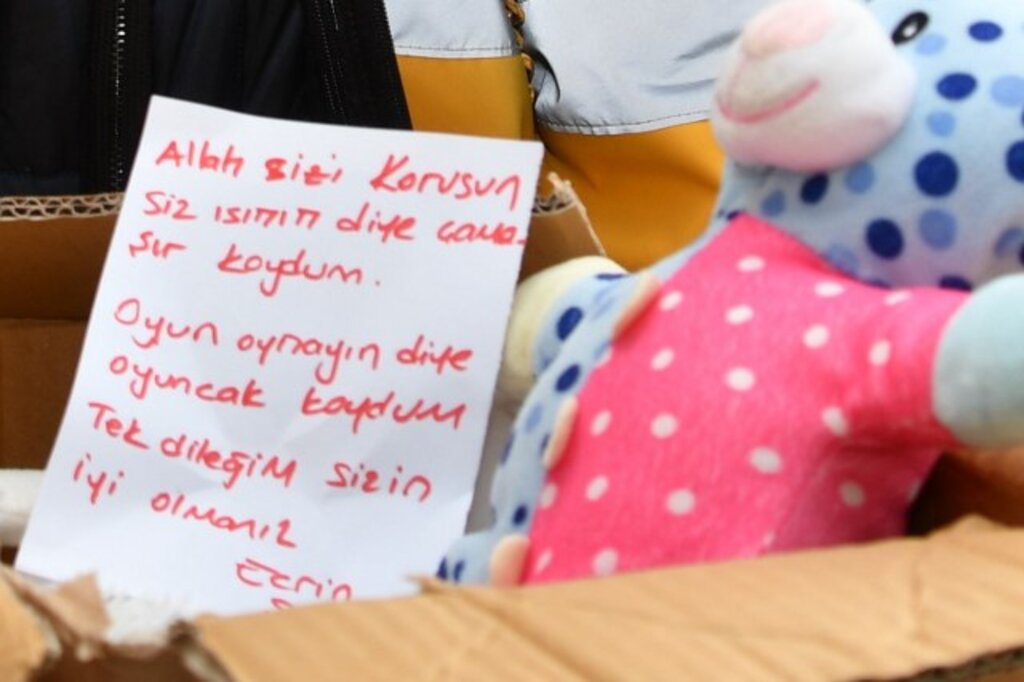 Allah sizi Korusun
siz ısının diye çama-
şır koydum.
Oyun oynayın diye
oyuncak koydum
Tek dileğim sizin
iyi olmanız
Ecrin